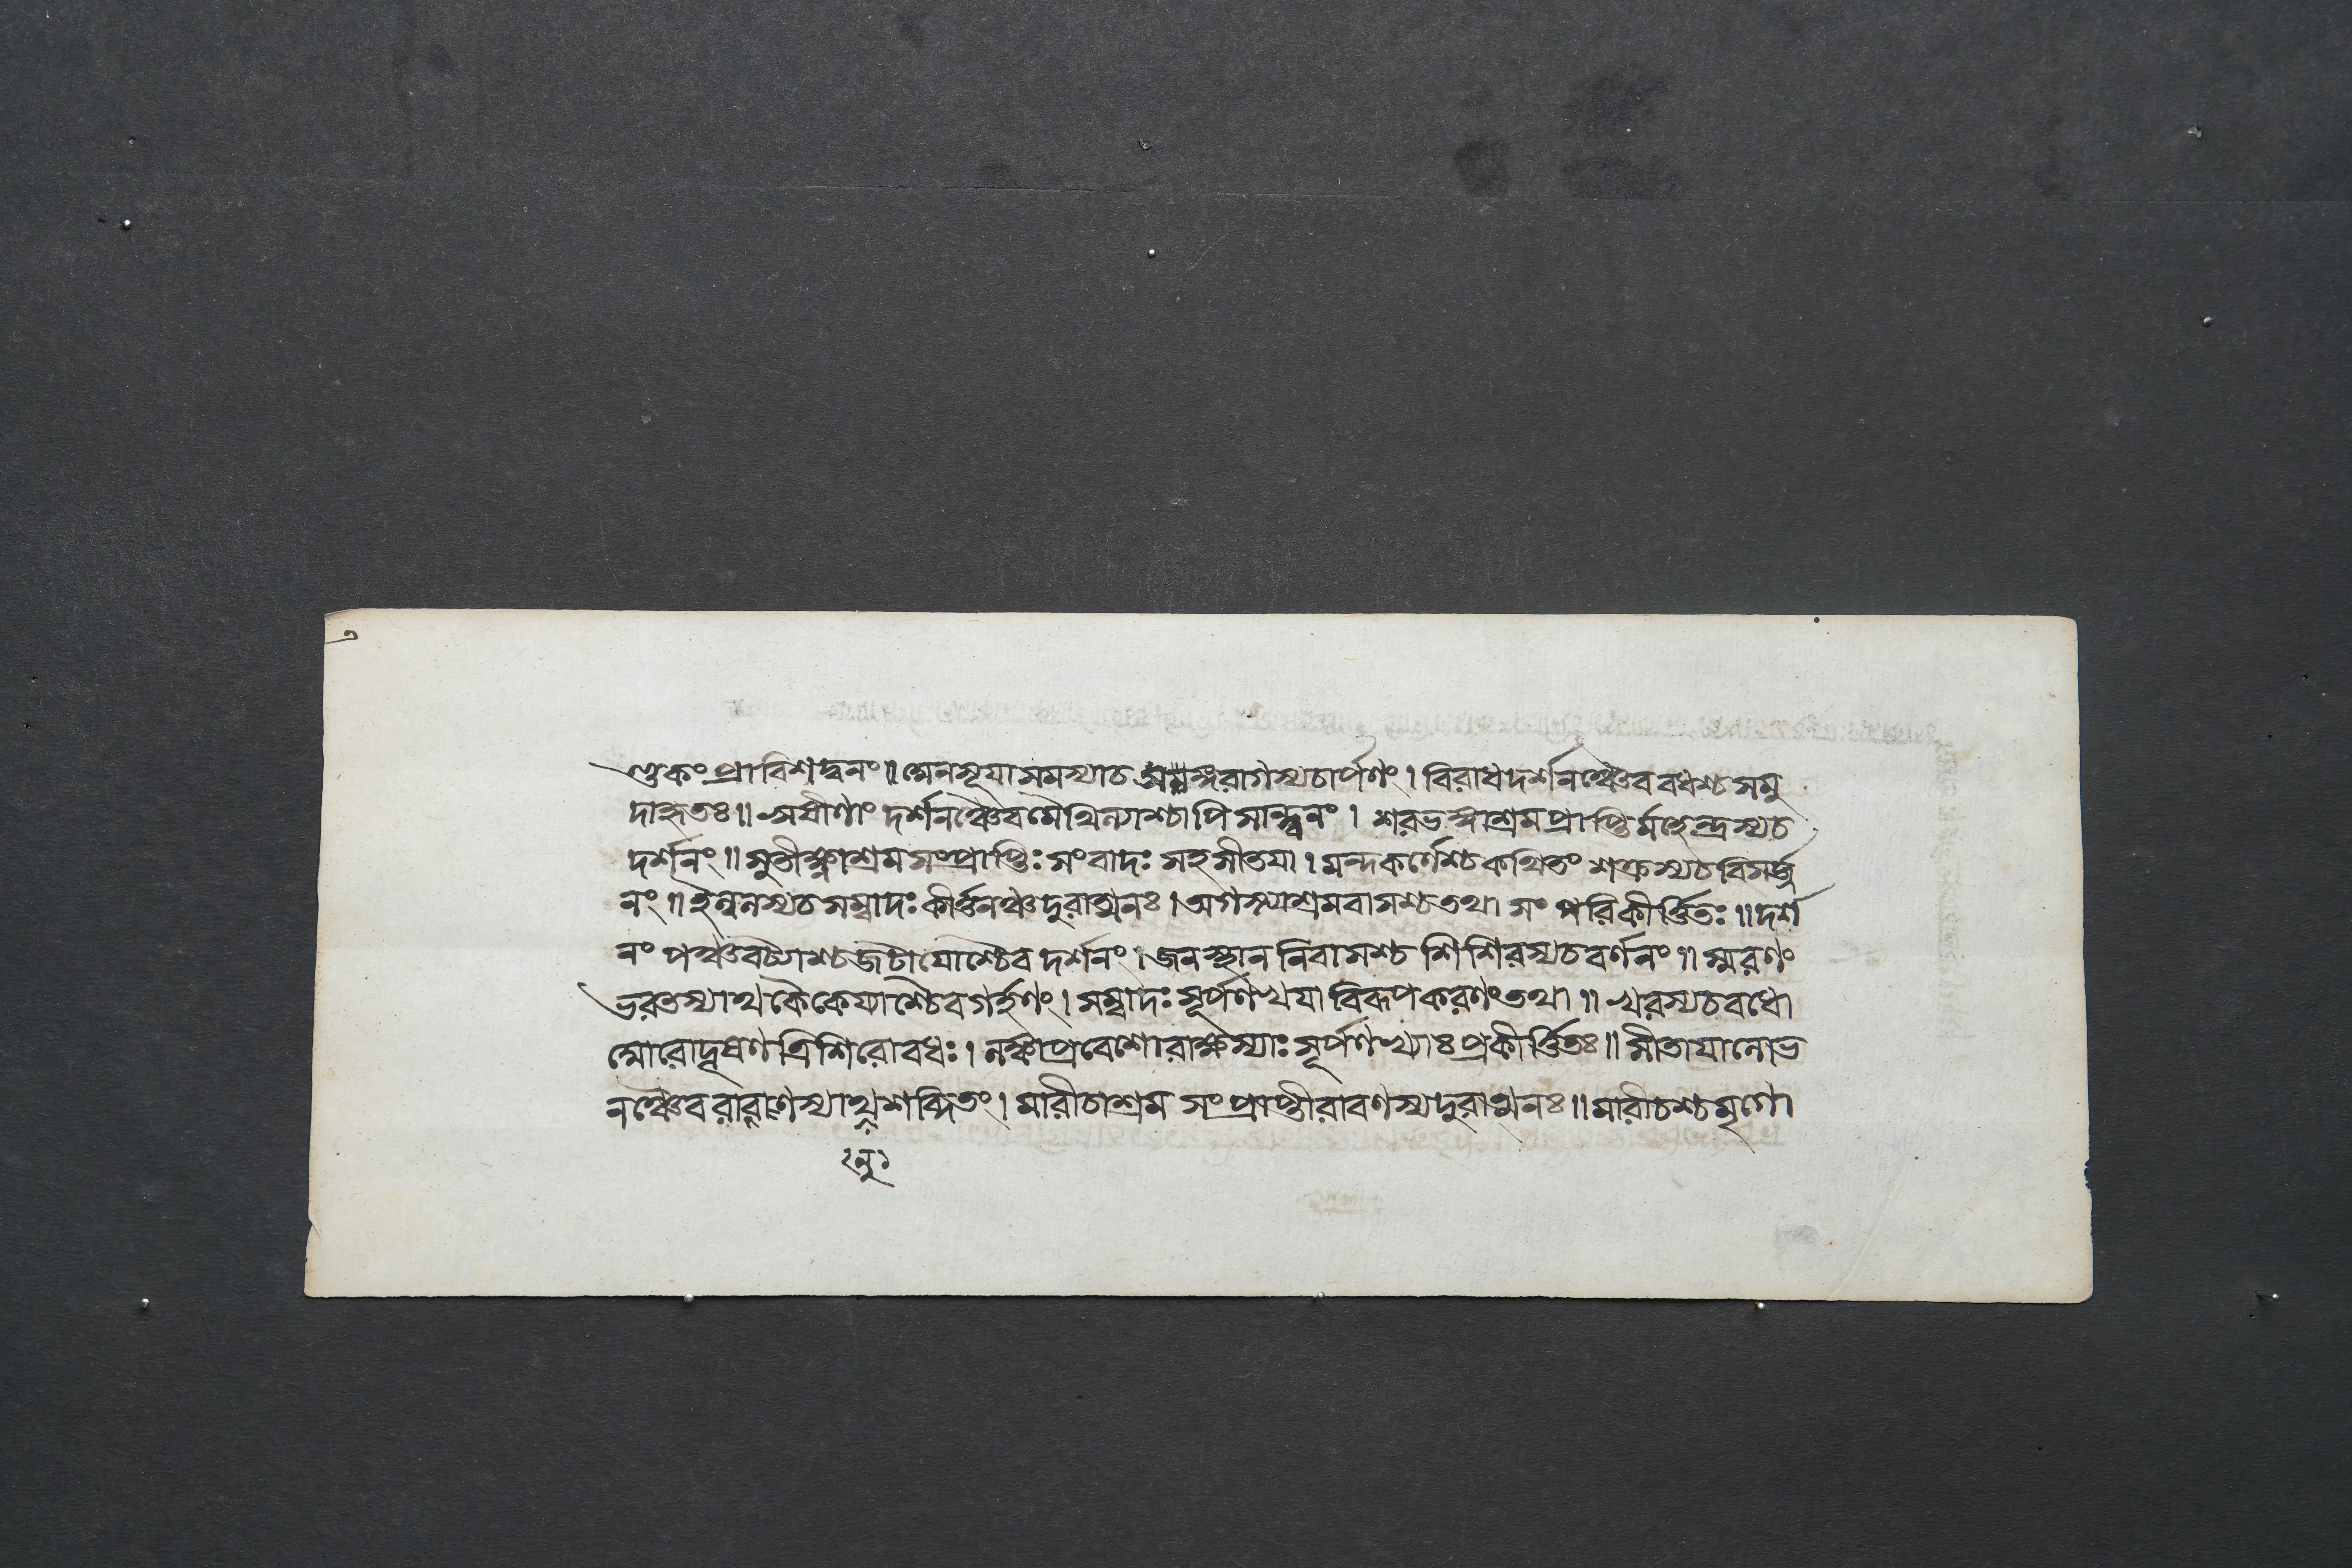 ণ্ডকং প্রাবিশদ্বনং॥ অনসূয়াসমস্যাচ অঙ্গরাগস্যচার্পণং। বিরাধদর্শনঞ্চৈব বধশ্চ সমু
দাহৃতঃ॥ ঋষীণাং দর্শনঞ্চৈব মৈথিল্যাশ্চাপি সান্ত্বনং। শরভঙ্গাশ্রমপ্রাপ্তির্মহেন্দ্রস্যচ
দর্শনং॥ সুতীক্ষ্ণাশ্রমসংপ্রাপ্তিঃ সংবাদঃ সহসীতয়া। মন্দকর্ণেশ্চ কথিতং শক্রস্যচ বিসর্জ্জ
নং॥ ইল্বলস্যচ সম্বাদঃ কীর্ত্তনঞ্চ দুরাত্মনঃ। অগস্ত্যাশ্রমবাসশ্চ তথা সং পরিকীর্ত্তিতঃ॥ দর্শ
নং পঞ্চবট্যাশ্চ জটায়োশ্চৈব দর্শনং। জনস্থান নিবাসশ্চ শিশিরস্যচ বর্ণনং॥ স্মরণং
ভরতস্যাথ কৈকেয়্যাশ্চৈব গর্হণং। সম্বাদঃ সূর্পণখয়া বিরূপকরণং তথা॥ খরস্যচ বধো
ঘোরো দূষণ ত্রিশিরোবধঃ। লঙ্কাপ্রবেশো রাক্ষস্যাঃ সূর্পণখ্যাঃ প্রকীর্ত্তিতঃ॥ সীতায়া লোভ
নঞ্চৈব রাবণস্যাথ শব্দিতং। মারীচাশ্রম সংপ্রাপ্তী রাবণস্য দুরাত্মনঃ॥ মারীচশ্চ মৃগো
নু